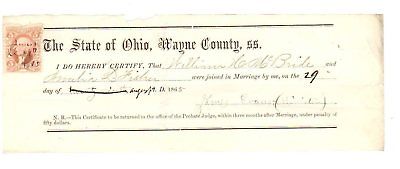 The State of Ohio, Wayne County, ss.
I DO HEREBY CERTIFY, That William H. McBride
and Fisher were joined in Marriage by me, on the 29
day of August A. D. 1865
N. B.—This Certificate to be returned to the office of the Probate Judge, within three months after Marriage, under penalty of
fifty dollars.